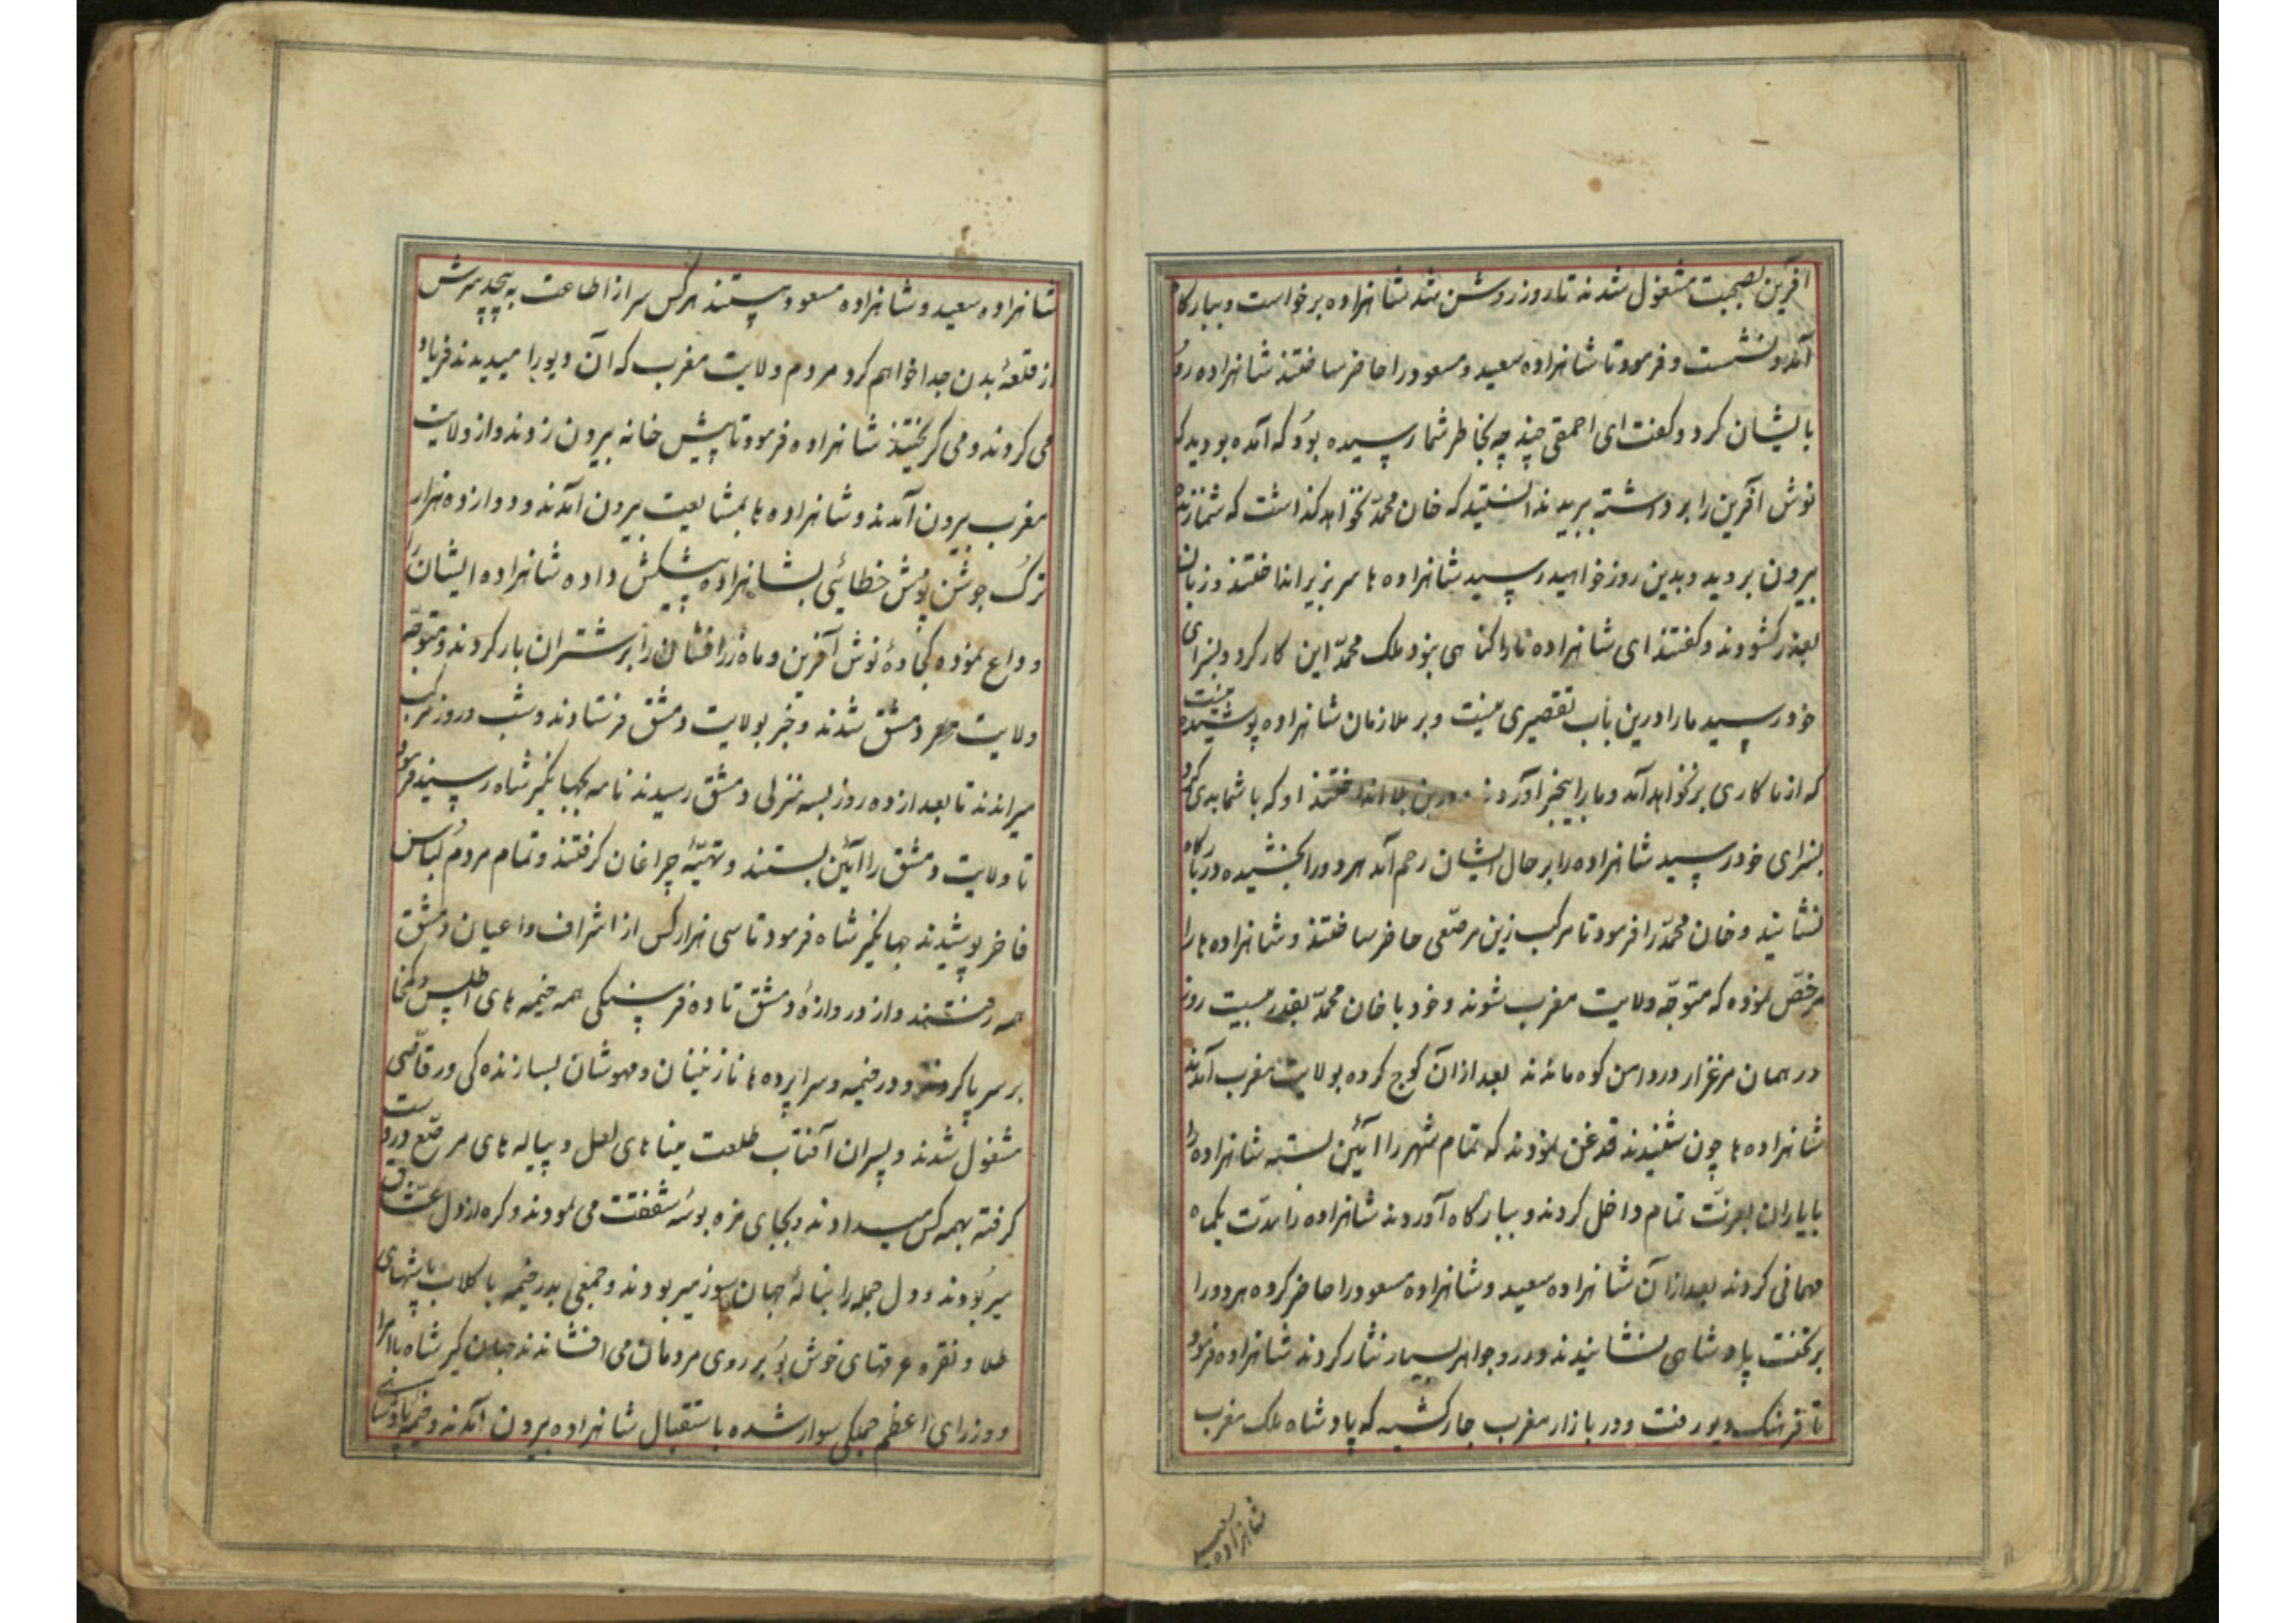 آفرین بصحبت مشغول شدند تا روز روشن شد شاهزاده برخواست و ببارکا
آمد و نشست و فرمود تا شاهزاده سعید و مسعود را حاضر ساختند شاهزاده رو
بایشان کرد و کفت ای احمقی چند چه بخاطر شما رسیده بود که آمده بودید که
نوش آفرین را برداشته ببرید ندانستید که خان محمد نخواهد کذاشت که شما زنده
بیرون بروید و بدین روز خواهید رسید شاهزاده ها سر بزیر انداختند و زبان
بعذر کشودند و کفتند ای شاهزاده ما را کناهی نبود ملک محمد این کار کرد و بسزای
خود رسید ما را درین باب تقصیری نیست و بر ملازمان شاهزاده پوشیده نیست
که از ما کاری برنخواهد آمد و ما را بیخبر آوردند و درین بلا انداختند او که با شما بدی کرد
بسزای خود رسید شاهزاده را بر حال ایشان رحم آمد هر دو را بخشیده در بارکاه
نشانید و خان محمد را فرمود تا مرکب زین مرصعی حاضر ساختند و شاهزاده ها را
مرخص نموده که متوجه ولایت مغرب شوند و خود با خان محمد بقدر بیست روز
در همان مرغزار و در دامن کوه ماندند بعد از آن کوچ کرده بولایت مغرب آمدند
شاهزاده ها چون شنیدند قدغن نمودند که تمام شهر را آئین بسته شاهزاده را
با یاران بعزت تمام داخل کردند و ببارکاه آوردند شاهزاده را مدت یکماه
مهمانی کردند بعد از آن شاهزاده سعید و شاهزاده مسعود را حاضر کرده هر دو را
بر تخت پادشاهی نشانیدند و زر و جواهر بسیار نثار کردند شاهزاده فرمود
تا فرهنک دیو رفت و در بازار مغرب جار کشید که پادشاه ملک مغرب
شاهزاده سعید
شاهزاده سعید و شاهزاده مسعود هستند هر کس سر از اطاعت به پیچد سرش
از قلعهٔ بدن جدا خواهم کرد مردم ولایت مغرب که آن دیو را میدیدند فریاد
می کردند و می کریختند شاهزاده فرمود تا پیش خانه بیرون زدند و از ولایت
مغرب بیرون آمدند و شاهزاده ها بمشایعت بیرون آمدند و دوازده هزار
ترک جوشن پوش خطائی بشاهزاده پیشکش داده شاهزاده ایشان را
وداع نموده کجاوهٔ نوش آفرین و ماه زرافشان را بر شتران بار کردند و متوجه
ولایت دمشق شدند و خبر بولایت دمشق فرستادند و شب و روز مرکب
میراندند تا بعد از ده روز بسه منزلی دمشق رسیدند نامه بجهانکیر شاه رسید فرمود
تا ولایت دمشق را آئین بستند و تهیهٔ چراغان کرفتند و تمام مردم لباس
فاخر پوشیدند جهانکیر شاه فرمود تا سی هزار کس از اشراف و اعیان دمشق
همه رفتند و از دروازهٔ دمشق تا ده فرسنکی همه خیمه های اطلس و کمخا
بر سر پا کردند و در خیمه و سراپرده ها نازنینان و مهوشان بسازنده کی و رقاصی
مشغول شدند و پسران آفتاب طلعت میناهای لعل و پیاله های مرصع در دست
کرفته بهمه کس میدادند و بجای مزه بوسه شفقت می نمودند و کره از دل عشاق
میربودند و دل جمله را بنالهٔ جهان سوز میربودند و جمعی بدر خیمه با کلاب پاشهای
طلا و نقره عرقهای خوش بو بر روی مردمان می افشاندند جهان کیر شاه با امرا
و وزرای اعظم جملکی سوار شده باستقبال شاهزاده بیرون آمدند و خیمه